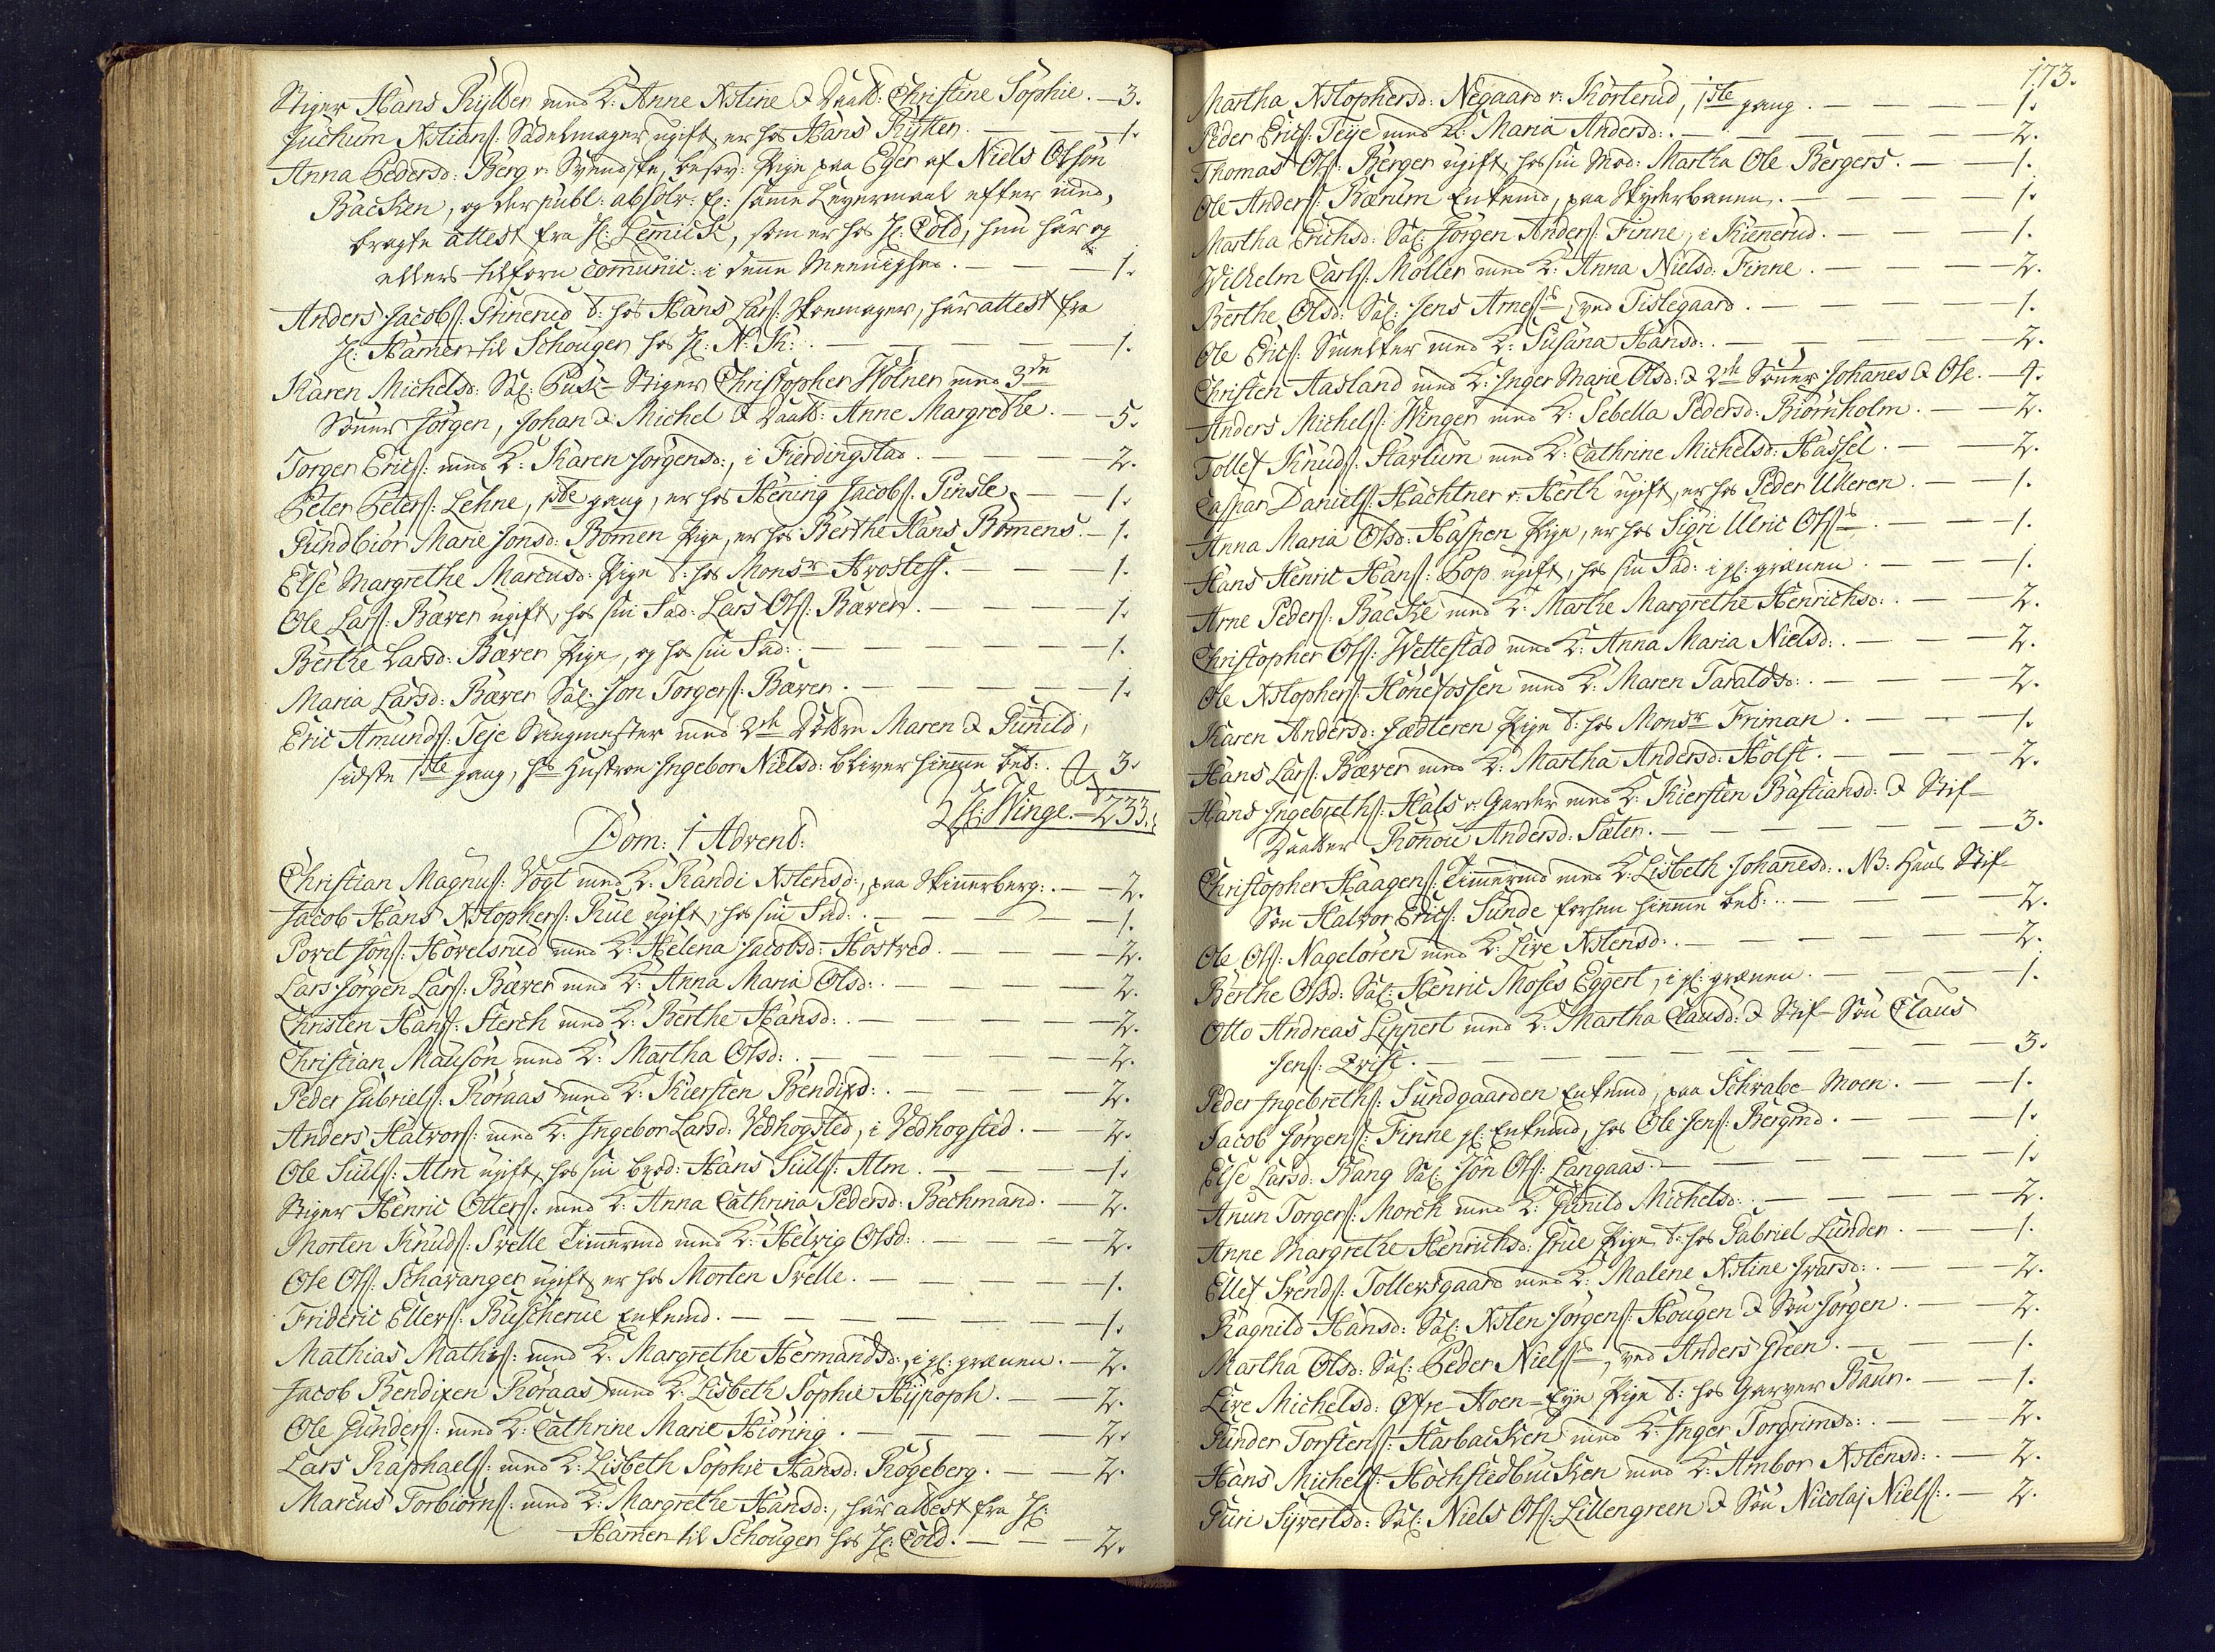 Stiger Hans Rytter med K: Anne Xstine & Daatt: Christine Sophie. — 3.
Juchum Xstians: Sadelmager ugift, er hos Hans Rytter. — 1.
Anna Pedersd: Berg v. Svendske, besov: Pige paa Eger af Niels Olsön
Backen, og der publ: absolv: for samme Leyermaal efter med,
bragte attest fra H: Lemick, som er hos H: Cold, hun har og
ellers tilforn comunic: i denne Meenighed. — 1.
Anders Jacobs: Grinerud t: hos Hans Lars: Skoemager, har attest fra
H: Hamer til Schougen hos H: N: K: — 1.
Karen Michelsd: Sal: Puk= Stiger Christopher Wölner med 3de
Sönner Jörgen, Johan & Michel & Daatt: Anne Margrethe. — 5.
Torger Erics: med K: Karen Jörgensd:, i Fierdingstad. — 2.
Peter Peters: Lehne, 1ste gang, er hos Hening Jacobs: Pinsle. — 1.
Gundbiör Marie Jonsd: Bömen Pige, er hos Berthe Hans Bömens. — 1.
Else Margrethe Marcusd: Pige t: hos Monsr Arostess. — 1.
Ole Lars: Bæver ugift, hos sin Fad: Lars Ols: Bæver. — 1.
Berthe Larsd: Bæver Pige, og hos sin Fad: — 1.
Maria Larsd: Bæver Sal: Jon Torgers: Bæver. — 1.
Eric Amunds: Teje Sangmester med 2de Döttre Maren & Gunild,
sidste 1ste gang, hs Hustroe Ingebor Nielsd: bliver hiemme bet: 3.
H: Winge. — 233.
Dom: 1 Advent:
Christian Magnus: Vogt med K: Randi Xstensd:, paa Skinnerberg: — 2.
Jacob Hans Xstophers: Rue ugift, hos sin Fad: — 1.
Povel Jöns: Hövelsrud med K: Helena Jacobsd: Hostved. — 2.
Lars Jörgen Lars: Bæver med K: Anna Maria Olsd: — 2.
Christen Hans: Sterch med K: Berthe Hansd: — 2.
Christian Mauson med K: Martha Olsd: — 2.
Peder Gabriels: Röraas med K: Kiersten Bendixd: — 2.
Anders Halvors: med K: Ingebor Larsd: Vedhogsted, i Vedhogsted. — 2.
Ole Juuls: Alm ugift, hos sin Brod: Hans Juuls: Alm. — 1.
Stiger Henric Otters: med K: Anna Cathrina Pedersd: Bechmand. — 2.
Morten Knuds: Svelle Timermd med K: Helvig Olsd: — 2.
Ole Ols: Schavanger ugift, er hos Morten Svelle. — 1.
Frideric Ellers: Buscherue Enkemd. — 1.
Mathias Mathis: med K: Margrethe Hermandsd:, i gl: grænen. — 2.
Jacob Bendixen Röraas med K: Lisbeth Sophie Hijroph. — 2.
Ole Gunders: med K: Cathrine Marie Hiöring. — 2.
Lars Raphaels: med K: Lisbeth Sophie Hansd: Rögeberg. — 2.
Marcus Torbiörns: med K: Margrethe Hansd:, har attest fra H:
Hamer til Schougen hos H: Cold. — 2.
173.
Martha Xstophersd: Negaard v. Korterud, 1ste gang. — 1.
Peder Erics: Teije med K: Maria Andersd: — 2.
Thomas Ols: Berger ugift, hos sin Mod: Martha Ole Bergers. — 1.
Ole Anders: Bærum Enkemd, paa Skyderbanen. — 1.
Martha Erichsd: Sal: Jörgen Anders: Finne, i Kienerud. — 1.
Wilhelm Carls: Möller med K: Anna Nielsd: Finne. — 2.
Berthe Olsd: Sal: Jens Arness, ved Tislegaard. — 1.
Ole Erics: Smelter med K: Susana Hansd: — 2.
Christen Aasland med K: Inger Marie Olsd: & 2de Sönner Johanes & Ole. — 4.
Anders Michels: Winger med K: Sebella Pedersd: Biörnholm. — 2.
Tollef Knuds: Skarlum med K: Cathrine Michelsd: Hassel. — 2.
Caspar Daniels: Hachtner v. Herth ugift, er hos Peder Ukeren. — 1.
Anna Maria Olsd: Haspen Pige, er hos Sigri Ulric Olss. — 1.
Hans Henric Hans: Pop ugift, hos sin Fad: i gl: grænen. — 1.
Arne Peders: Backe med K: Marthe Margrethe Henrichsd: — 2.
Christopher Ols: Wettestad med K: Anna Maria Nielsd: — 2.
Ole Xstophers: Hönefossen med K: Maren Taraldsd: — 2.
Karen Andersd: Jædteren Pige t: hos Monsr Friman. — 1.
Hans Lars: Bæver med K: Martha Andersd: Holst. — 2.
Hans Ingebreths: Hals v. Garder med K: Kiersten Bastiansd: & Stif-
Daatter Rönou Andersd: Sæter. — 3.
Christopher Haagens: Timermd med K: Lisbeth Johanesd: NB: Hans Stif-
Sön Halvor Erics: Sunde forhen hiemme bet: — 2.
Ole Ols: Nagelören med K: Live Xstensd: — 2.
Berthe Olsd: Sal: Henric Moses Eggert, i gl: grænen. — 1.
Otto Andreas Lippert med K: Martha Clausd: & Stif-Sön Claus
Jens: Qvist. — 3.
Peder Ingebreths: Sundgaarden Enkemd, paa Schwabe-Moen. — 1.
Jacob Jörgens: Finne gl: Enkemd, hos Ole Jens: Bergmd. — 1.
Else Larsd: Bang Sal: Jön Ols: Langaas. — 1.
Anun Torgers: Morch med K: Gunild Michelsd: — 2.
Anne Margrethe Henrichsd: Grue Pige t: hos Gabriel Lunder. — 1.
Ellef Svends: Tollersgaard med K: Malene Xstine Ivarsd: — 2.
Ragnild Hansd: Sal: Xsten Jörgens: Hougen & Sön Jörgen. — 2.
Martha Olsd: Sal: Peder Nielss, ved Anders Green. — 1.
Live Michelsd: Øfre-Hoen=Eye Pige t: hos Garver Baun. — 1.
Gunder Torstens: Harbacken med K: Inger Torgrimsd: — 2.
Hans Michels: Höchstedbacken med K: Ambor Xstensd: — 2.
Guri Sijvertsd: Sal: Niels Ols: Lillengreen & Sön Nicolaj Niels: — 2.